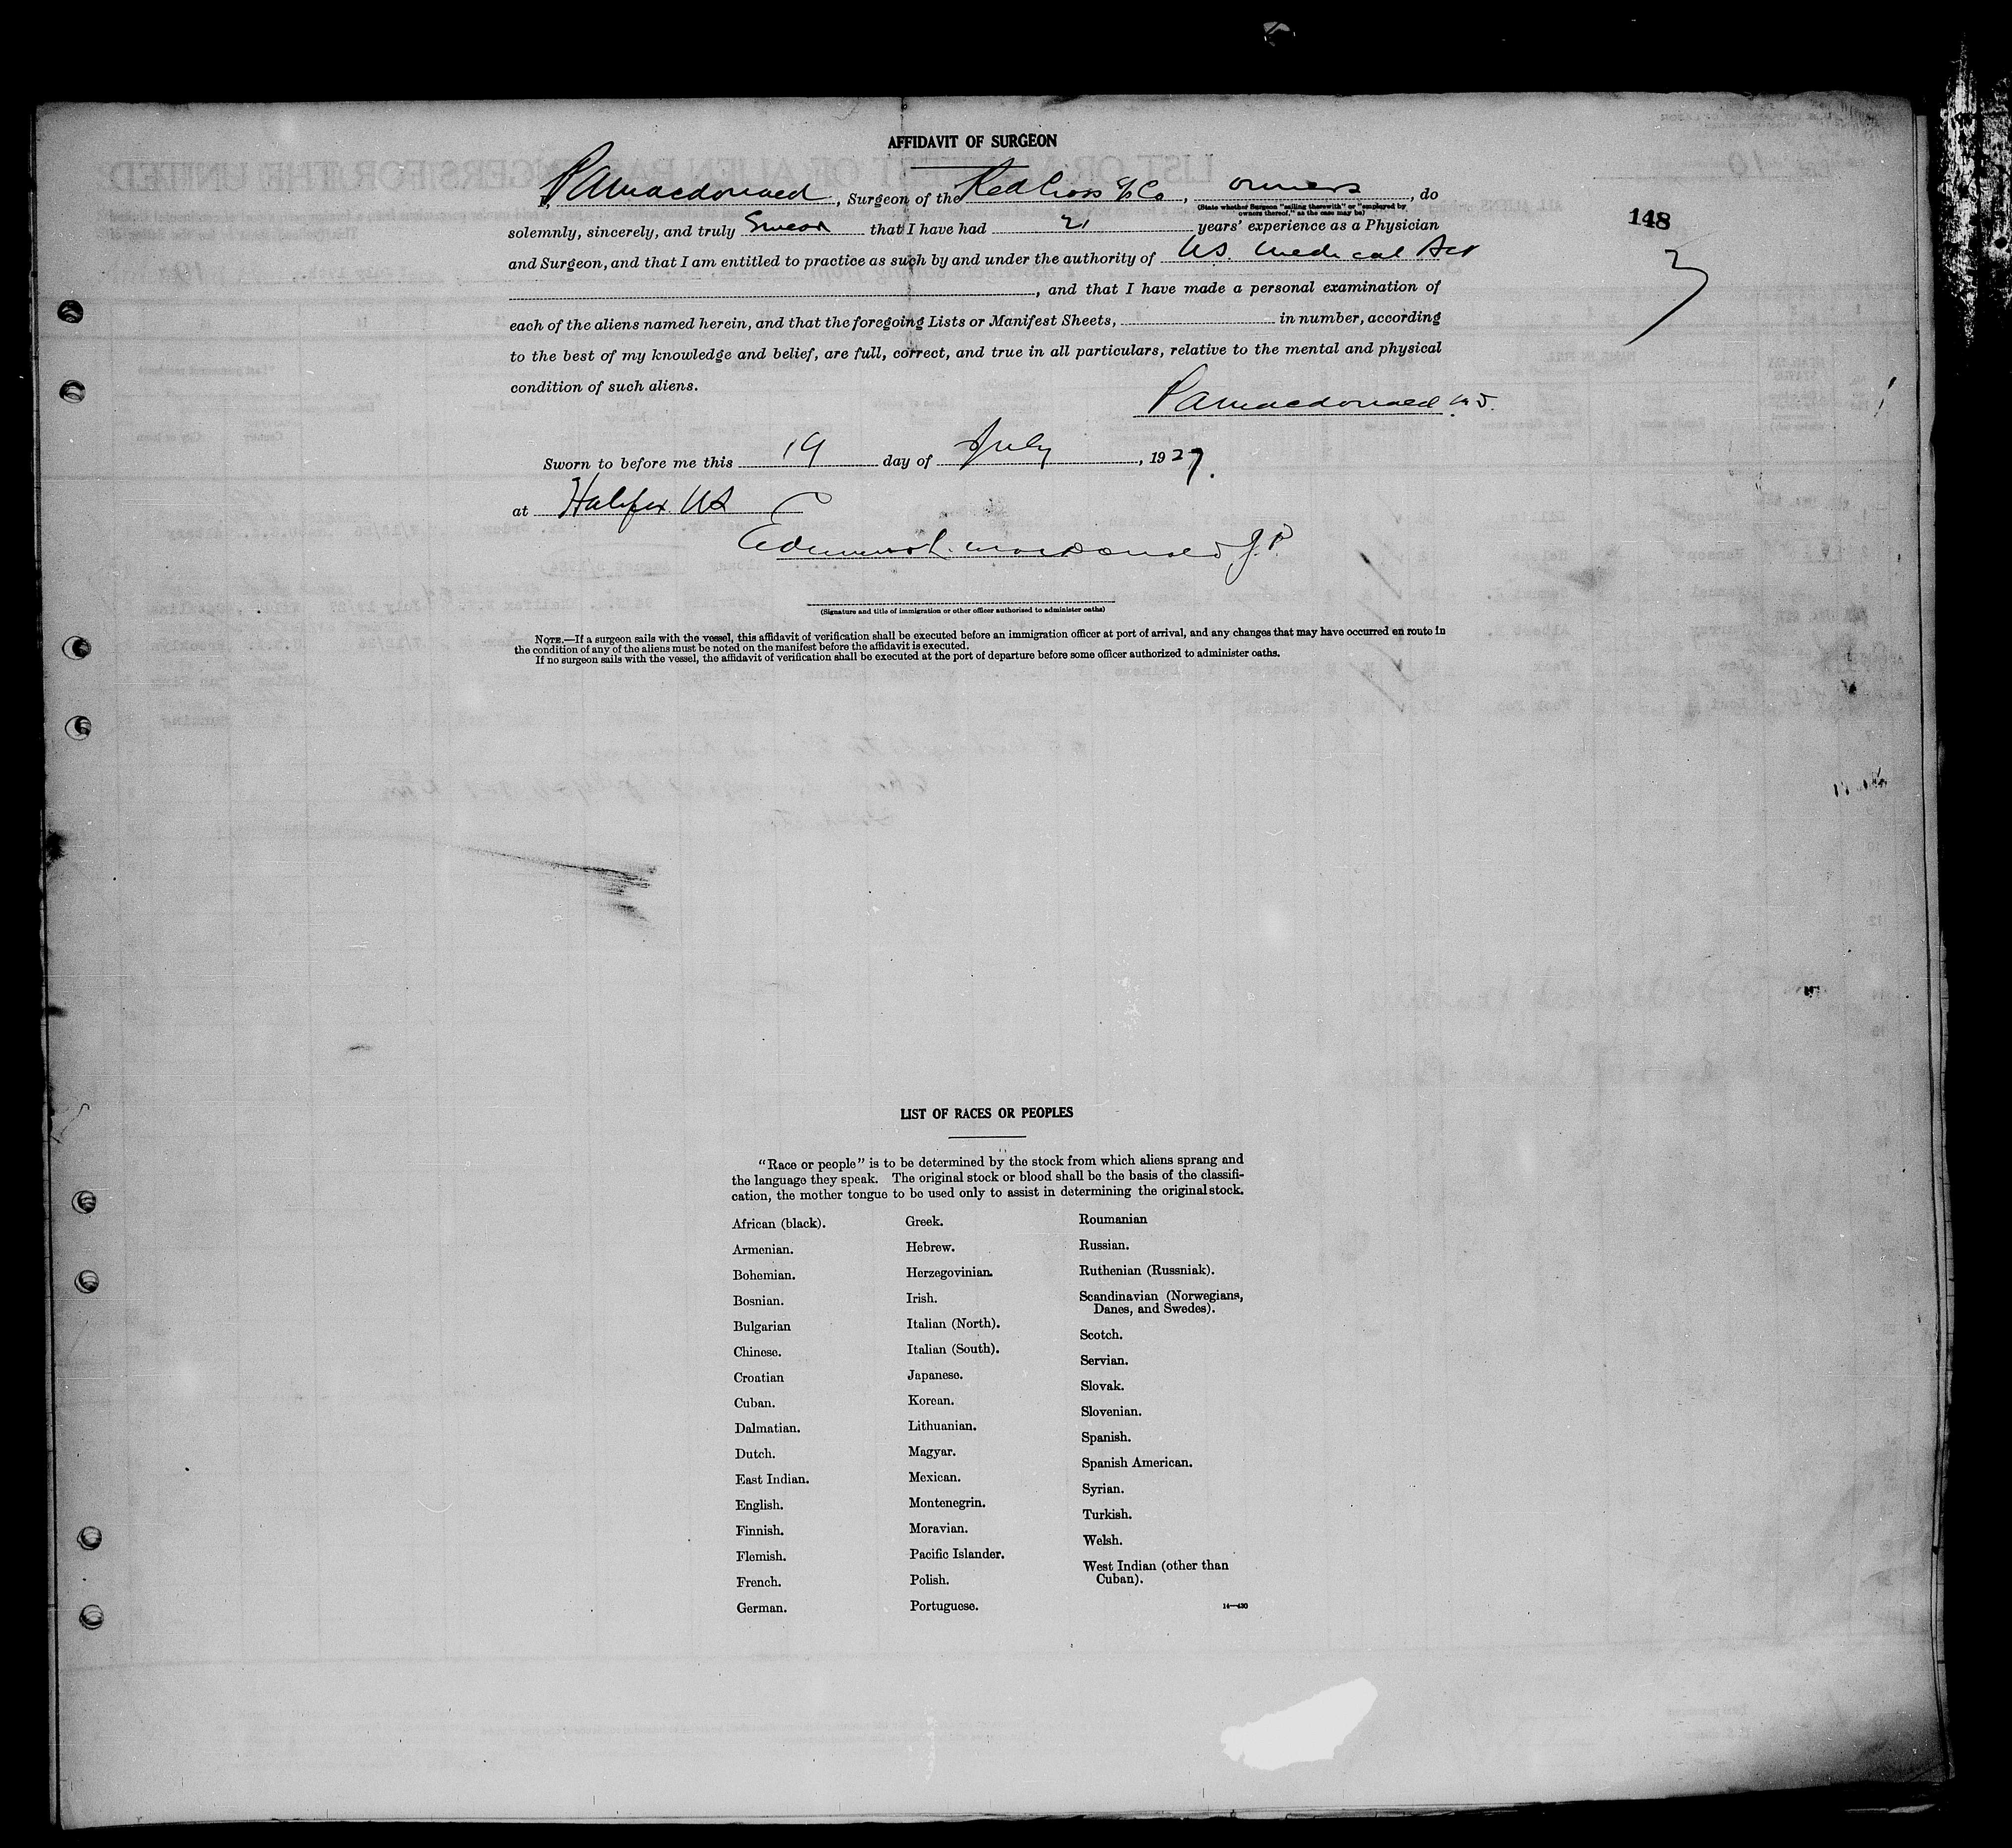 AFFIDAVIT OF SURGEON
I, P A Macdonald, Surgeon of the Red Cross SS Co, owners, do
(State whether Surgeon "sailing therewith" or "employed by
owners thereof," as the case may be)
148
solemnly, sincerely, and truly Swear that I have had 21 years' experience as a Physician
and Surgeon, and that I am entitled to practice as such by and under the authority of NS. Medical Act
, and that I have made a personal examination of
each of the aliens named herein, and that the foregoing Lists or Manifest Sheets, in number, according
to the best of my knowledge and belief, are full, correct, and true in all particulars, relative to the mental and physical
condition of such aliens.
P A Macdonald M D.
Sworn to before me this 19 day of July, 1927.
at Halifax NS
Macdonald J.P.
(Signature and title of immigration or other officer authorized to administer oaths)
NOTE.—If a surgeon sails with the vessel, this affidavit of verification shall be executed before an immigration officer at port of arrival, and any changes that may have occurred en route in
the condition of any of the aliens must be noted on the manifest before the affidavit is executed.
If no surgeon sails with the vessel, the affidavit of verification shall be executed at the port of departure before some officer authorized to administer oaths.
LIST OF RACES OR PEOPLES
"Race or people" is to be determined by the stock from which aliens sprang and
the language they speak. The original stock or blood shall be the basis of the classifi-
cation, the mother tongue to be used only to assist in determining the original stock.
African (black).
Armenian.
Bohemian.
Bosnian.
Bulgarian
Chinese.
Croatian
Cuban.
Dalmatian.
Dutch.
East Indian.
English.
Finnish.
Flemish.
French.
German.
Greek.
Hebrew.
Herzegovinian.
Irish.
Italian (North).
Italian (South).
Japanese.
Korean.
Lithuanian.
Magyar.
Mexican.
Montenegrin.
Moravian.
Pacific Islander.
Polish.
Portuguese.
Roumanian
Russian.
Ruthenian (Russniak).
Scandinavian (Norwegians,
Danes, and Swedes).
Scotch.
Servian.
Slovak.
Slovenian.
Spanish.
Spanish American.
Syrian.
Turkish.
Welsh.
West Indian (other than
Cuban).
14—430